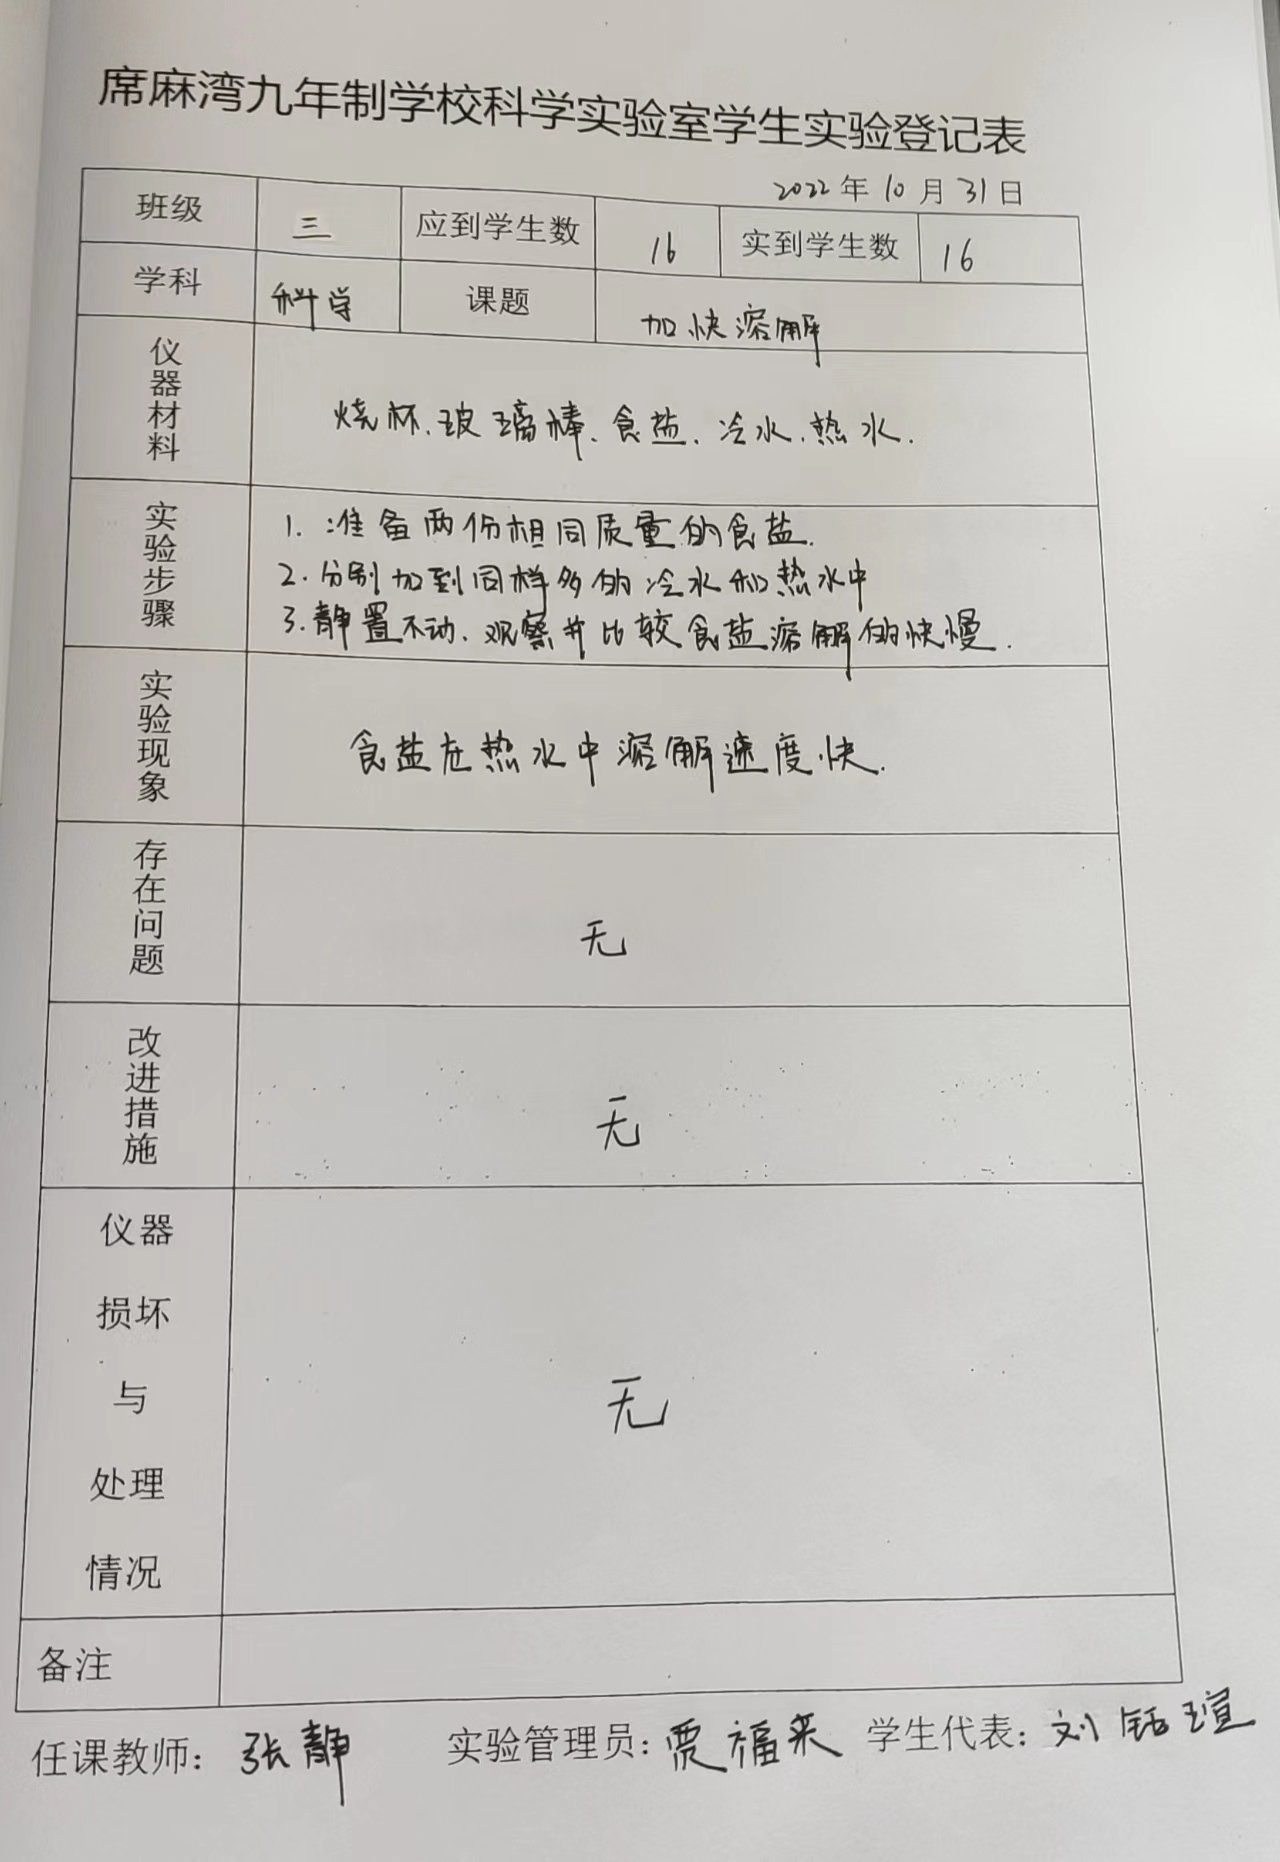 席麻湾九年制学校科学实验室学生实验登记表
2022年10月31日
班级 三 应到学生数 16 实到学生数 16
学科 科学 课题 加快溶解
仪器材料 烧杯、玻璃棒、食盐、冷水、热水.
实验步骤 1. 准备两份相同质量的食盐.
2. 分别加到同样多的冷水和热水中
3. 静置不动、观察并比较食盐溶解的快慢.
实验现象 食盐在热水中溶解速度快.
存在问题 无
改进措施 无
仪器
损坏
与 无
处理
情况
备注
任课教师：张静 实验管理员：贾福来 学生代表：刘钰瑄